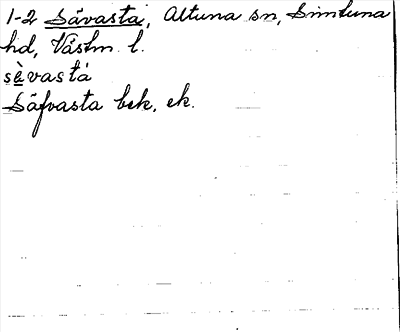 1-2 Sävasta, Altuna sn, Simtuna
hd, Västm l.
sè̱vastà
Säfvasta bek. ek.